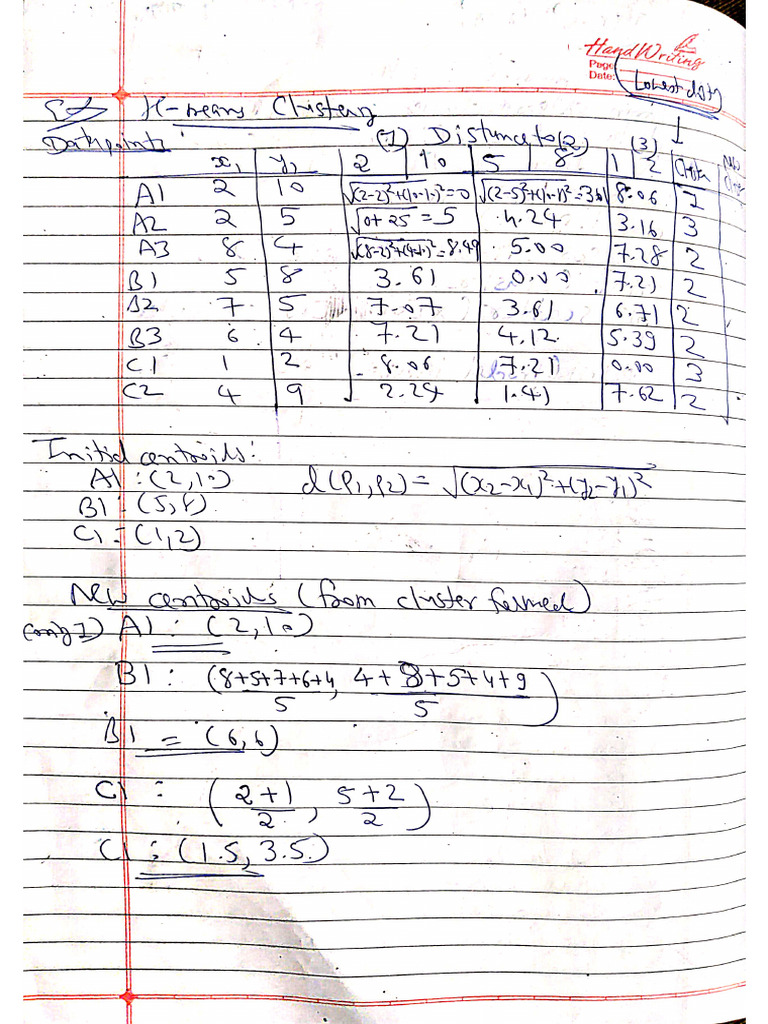 HandWriting
Page
Date:
(Lowest dist)
K-means Clustering
Datapoints:
(1) Distance to (2) (3)
x1 y1 2 10 5 8 1 2 Cluster New
A1 2 10 √(2-2)²+(10-10)²=0 √(2-5)²+(10-8)²=3.61 8.06 1
A2 2 5 √0+25 = 5 4.24 3.16 3
A3 8 4 √(8-2)²+(4-10)²=8.49 5.00 7.28 2
B1 5 8 3.61 0.00 7.21 2
B2 7 5 7.07 3.61 6.71 2
B3 6 4 7.21 4.12 5.39 2
C1 1 2 8.06 7.21 0.00 3
C2 4 9 2.24 1.41 7.62 2
Initial centroids:
A1 : (2,10) d(P1,P2) = √(x2-x1)²+(y2-y1)²
B1 : (5,8)
C1 = (1,2)
New centroids (from cluster formed)
A1 : (2,10)
B1 : (8+5+7+6+4/5, 4+8+5+4+9/5)
B1 = (6,6)
C1 : (2+1/2, 5+2/2)
C1 : (1.5, 3.5)